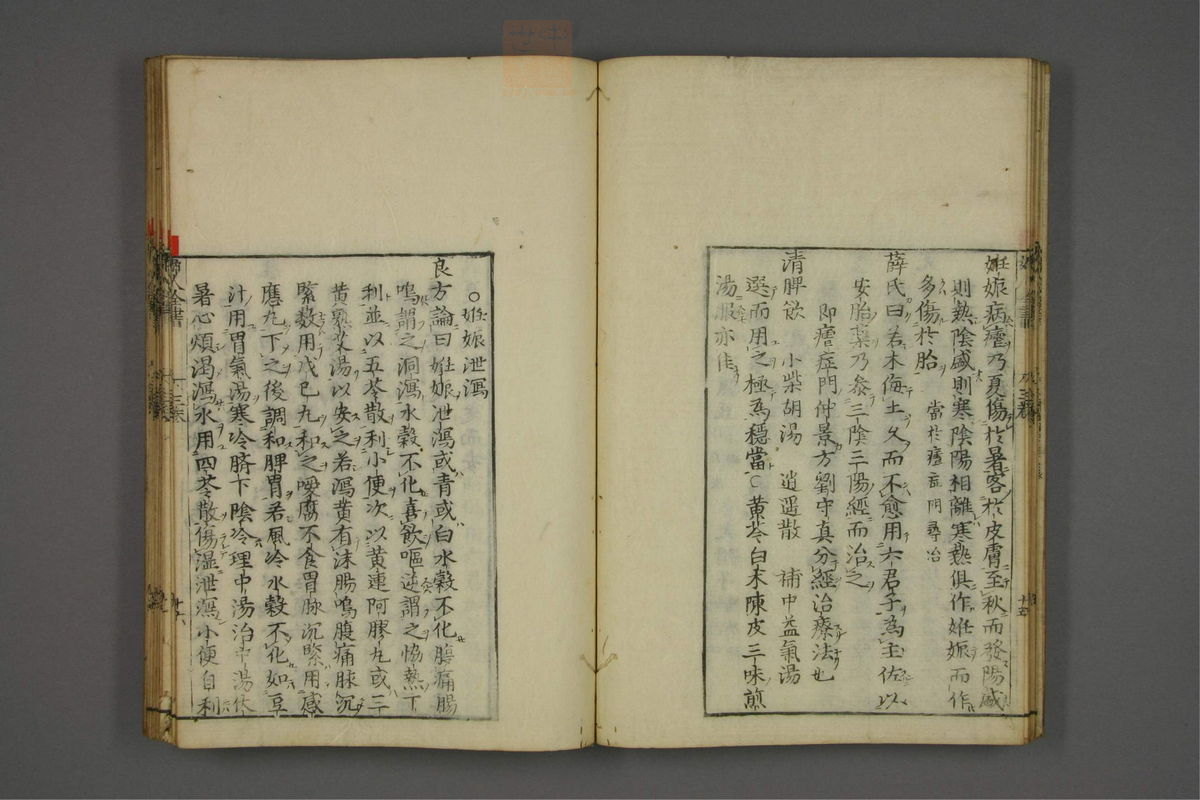 妊娠病瘧乃夏傷於暑客於皮膚至秋而發陽盛
則熱陰盛則寒陰陽相離寒熱俱作妊娠而作
多傷於胎 當於瘧症門尋治
薛氏曰若木侮土久而不愈用六君子為主佐以
安胎藥乃參三陰三陽經而治之
即瘧症門仲景方劉守真分經治療法也
清脾飲 小柴胡湯 逍遥散 補中益氣湯
選而用之極為穩當○黄芩白朮陳皮三味煎
湯服亦佳
○妊娠泄瀉
良方論曰妊娠泄瀉或青或白水穀不化腹痛腸
鳴謂之洞瀉水穀不化喜飲嘔逆謂之恊熱下
利並以五苓散利小便次以黄連阿膠丸或三
黄熟艾湯以安之若瀉黄有沫腸鳴腹痛脉沉
緊数用戊巳丸和之噯腐不食胃脉沉緊用感
應丸下之後調和脾胃若風冷水穀不化如豆
汁用胃氣湯寒冷臍下陰冷理中湯治中湯伏
暑心煩渇瀉水用四苓散傷湿泄瀉小便自利